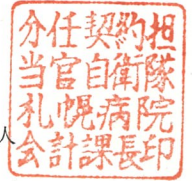 分任契約担
当官自衛隊
札幌病院
会計課長印
人